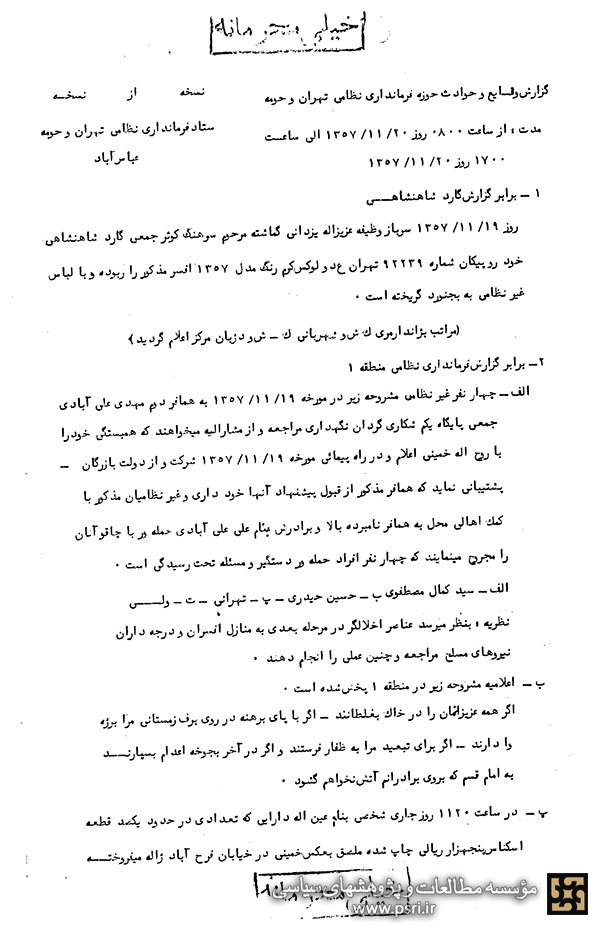 خیلی محرمانه
گزارش وقایع و حوادث حوزه فرمانداری نظامی تهران و حومه
نسخه از نسخه
مدت : از ساعت ۰۸۰۰ روز ۲۰ /۱۱ /۱۳۵۷ الی ساعت
ستاد فرمانداری نظامی تهران و حومه
۱۷۰۰ روز ۲۰ /۱۱ /۱۳۵۷
عباس آباد
۱ – برابر گزارش گارد شاهنشاهی
روز ۱۹ /۱۱ /۱۳۵۷ سرباز وظیفه عزیزاله یزدانی گماشته مرحوم سرهنگ کوثر جمعی گارد شاهنشاهی
خود رو پیکان شماره ۹۲۲۳۹ تهران ع دو لوکس کرم رنگ مدل ۱۳۵۷ افسر مذکور را ربوده و با لباس
غیر نظامی به بجنورد گریخته است ۰
(مراتب بژاندارمری ك ش و شهربانی ك – ش و دژبان مرکز اعلام گردید)
۲– برابر گزارش فرمانداری نظامی منطقه ۱
الف – چهار نفر غیر نظامی مشروحه زیر در مورخه ۱۹ /۱۱ /۱۳۵۷ به همافر دوم مهدی علی آبادی
جمعی پایگاه یکم شکاری گردان نگهداری مراجعه و از مشارالیه میخواهند که همبستگی خود را
با روح اله خمینی اعلام و در راه پیمائی مورخه ۱۹ /۱۱ /۱۳۵۷ شرکت و از دولت بازرگان –
پشتیبانی نماید که همافر مذکور از قبول پیشنهاد آنها خود داری و غیر نظامیان مذکور با
کمك اهالی محل به همافر نامبرده بالا و برادرش بنام علی علی آبادی حمله ور با چاقو آنان
را مجروح مینمایند که چهار نفر افراد حمله ور دستگیر و مسئله تحت رسیدگی است ۰
الف – سید کمال مصطفوی ب – حسین حیدری – پ – تهرانی – ت – ولی
نظریه : بنظر میرسد عناصر اخلالگر در مرحله بعدی به منازل افسران و درجه داران
نیروهای مسلح مراجعه و چنین عملی را انجام دهند ۰
ب – اعلامیه مشروحه زیر در منطقه ۱ پخش شده است ۰
اگر همه عزیزانمان را در خاك بغلطانند – اگر با پای برهنه در روی برف زمستانی مرا برژه
وا دارند – اگر برای تبعید مرا به ظفار فرستند و اگر در آخر بجوخه اعدام بسپارند
به امام قسم که بروی برادرانم آتش نخواهم گشود ۰
پ – در ساعت ۱۱۲۰ روز جاری شخص بنام عین اله دارایی که تعدادی در حدود یکصد قطعه
اسکناس پنجهزار ریالی چاپ شده ملصق بعکس خمینی در خیابان فرح آباد ژاله میفروخته
مؤسسه مطالعات و پژوهشهای سیاسی
www.psri.ir